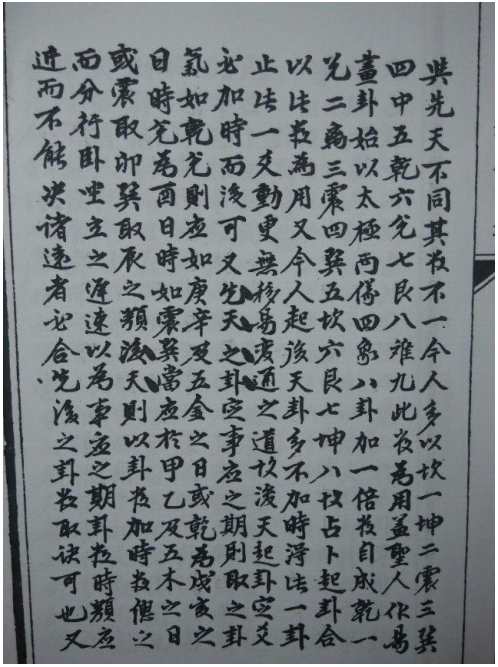 與先天不同其数不一今人多以坎一坤二震三巽
四中五乾六兑七艮八離九此数為用盖聖人作易
畫卦始以太極两儀四象八卦加一倍数自成乾一
兑二離三震四巽五坎六艮七坤八故占卜起卦合
以此数為用又今人起後天卦多不加時淂此一卦
止此一爻動更無移易变通之道故後天起卦定爻
必加時而後可又先天之卦定事应之期則取之卦
氣如乾兑則应如庚辛及五金之日或乾為戌亥之
日時兑為酉日時如震巽當应於甲乙及五木之日
或震取卯巽取辰之類後天則以卦数加時数偬之
而分行卧坐立之遲速以為事应之期卦数時類应
近而不能决諸遠者必合先後之卦数取诀可也又